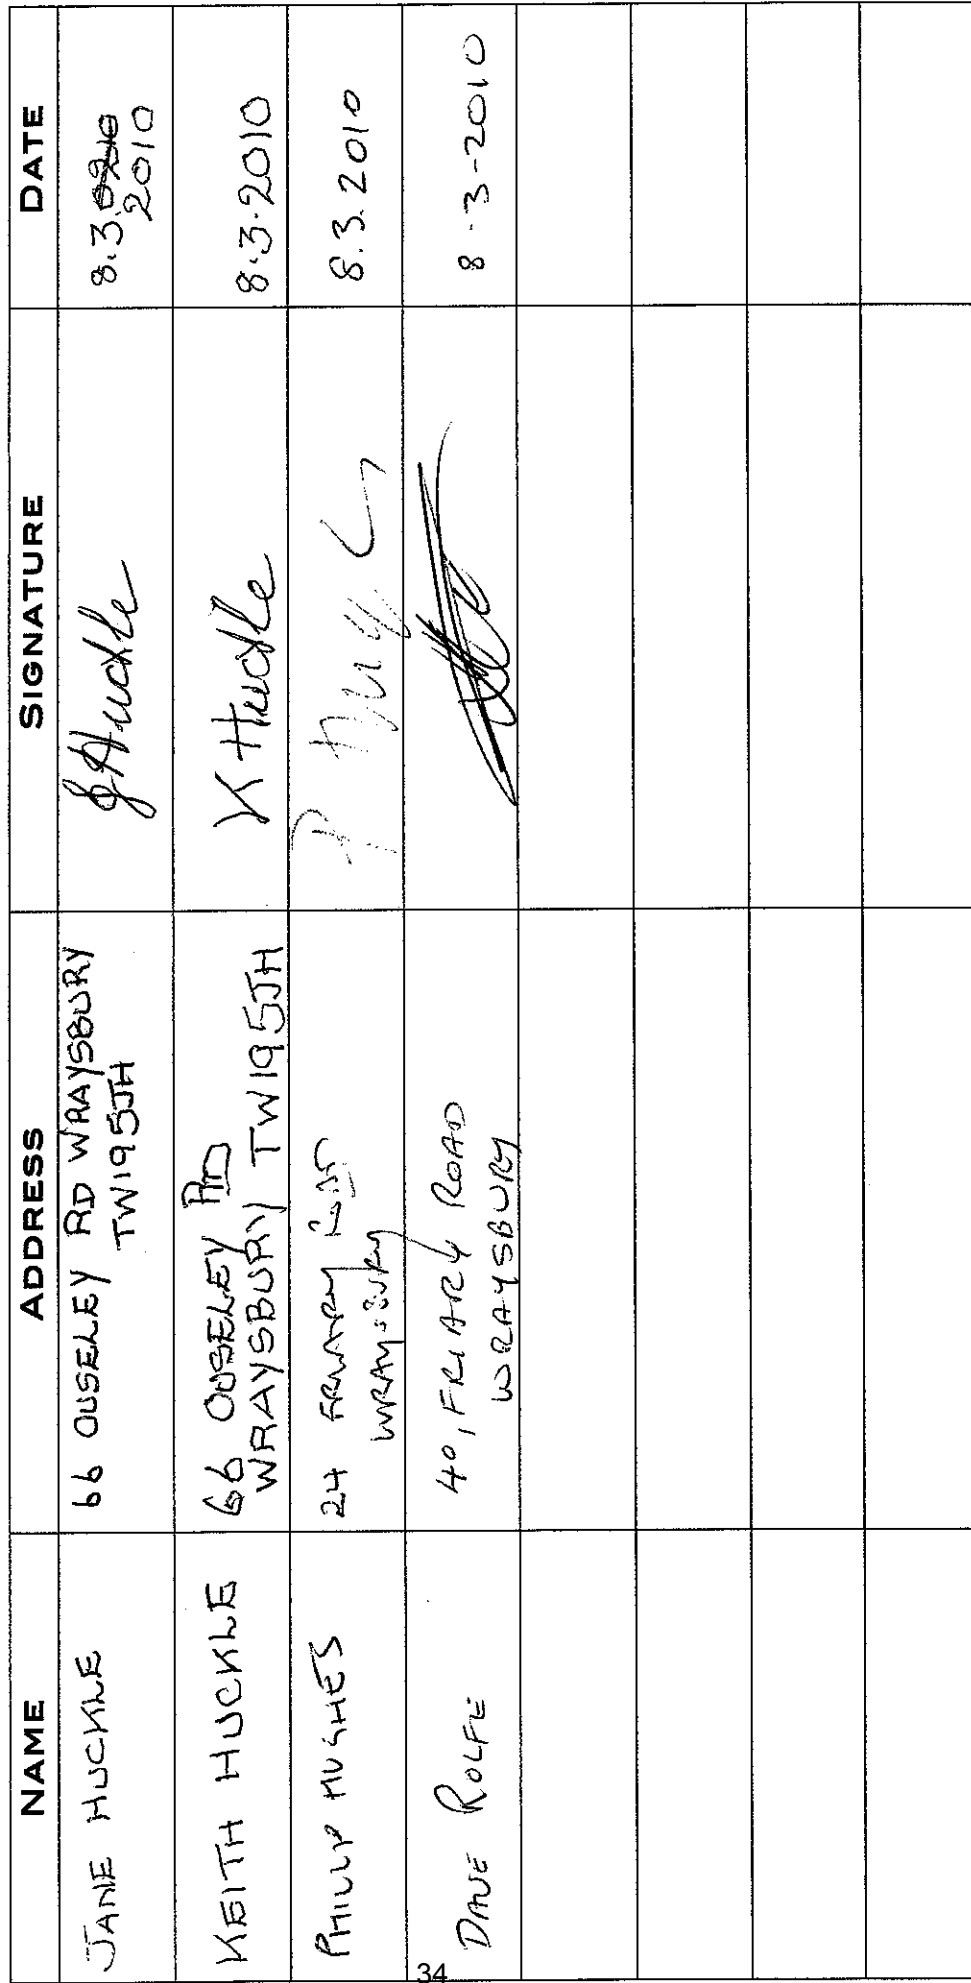 NAME ADDRESS SIGNATURE DATE
JANE HUCKLE 66 OUSELEY RD WRAYSBURY TW195JH J Huckle 8.3.0210 2010
KEITH HUCKLE 66 OUSELEY RD WRAYSBURY TW195JH K Huckle 8.3.2010
PHILLIP HUGHES 24 FRIARY ROAD WRAYSBURY 8.3.2010
DAVE ROLFE 40, FRIARY ROAD WRAYSBURY 8-3-2010
34